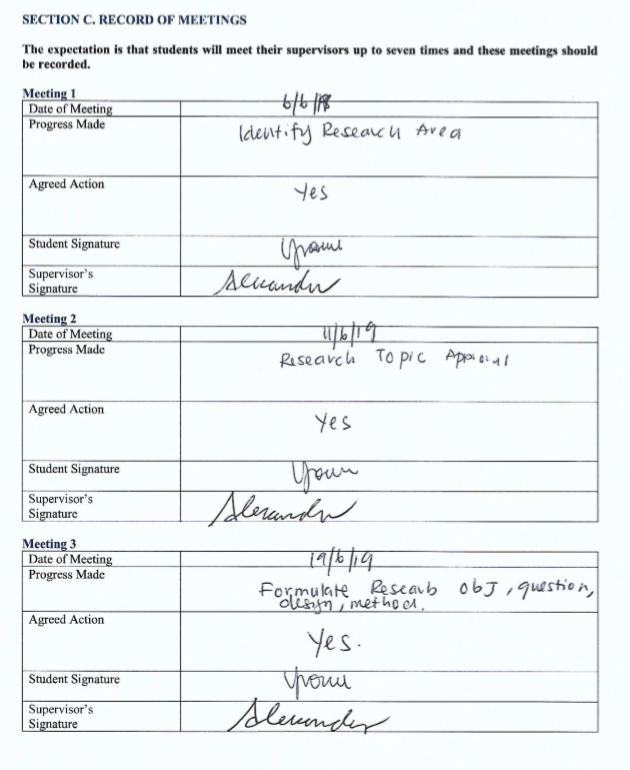 SECTION C. RECORD OF MEETINGS
The expectation is that students will meet their supervisors up to seven times and these meetings should
be recorded.
Meeting 1
Date of Meeting 6/6/
Progress Made Identify Research Area
Agreed Action Yes
Student Signature
Supervisor's
Signature
Meeting 2
Date of Meeting 11/6/19
Progress Made Research Topic
Agreed Action Yes
Student Signature
Supervisor's
Signature Alexander
Meeting 3
Date of Meeting 19/6/19
Progress Made Formulate Research obJ, question,
design, method.
Agreed Action Yes.
Student Signature
Supervisor's
Signature Alexander